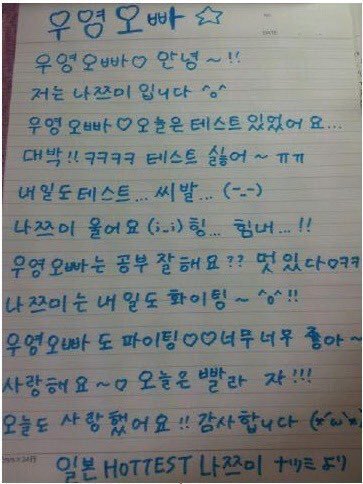 우영오빠 ☆
우영오빠♡ 안녕~!!
저는 나쯔미 입니다 ^o^
우영오빠♡오늘은 테스트 있었어요...
대박!! ㅋㅋㅋㅋ 테스트 싫어~ ㅠㅠ
내일도테스트... 씨발... (-_-)
나쯔미 울어요 (;_;) 힝... 힘내...!!
우영오빠는 공부 잘해요?? 멋있다♡ㅋㅋ
나쯔미는 내일도 화이팅~ ^o^ !!
우영오빠 도 파이팅♡♡너무너무 좋아~
사랑해요~♡ 오늘은 빨라 자!!!
오늘도 사랑했어요!! 감사합니다 (*´ω`*)
일본 HOTTEST 나쯔미 ナツミ より